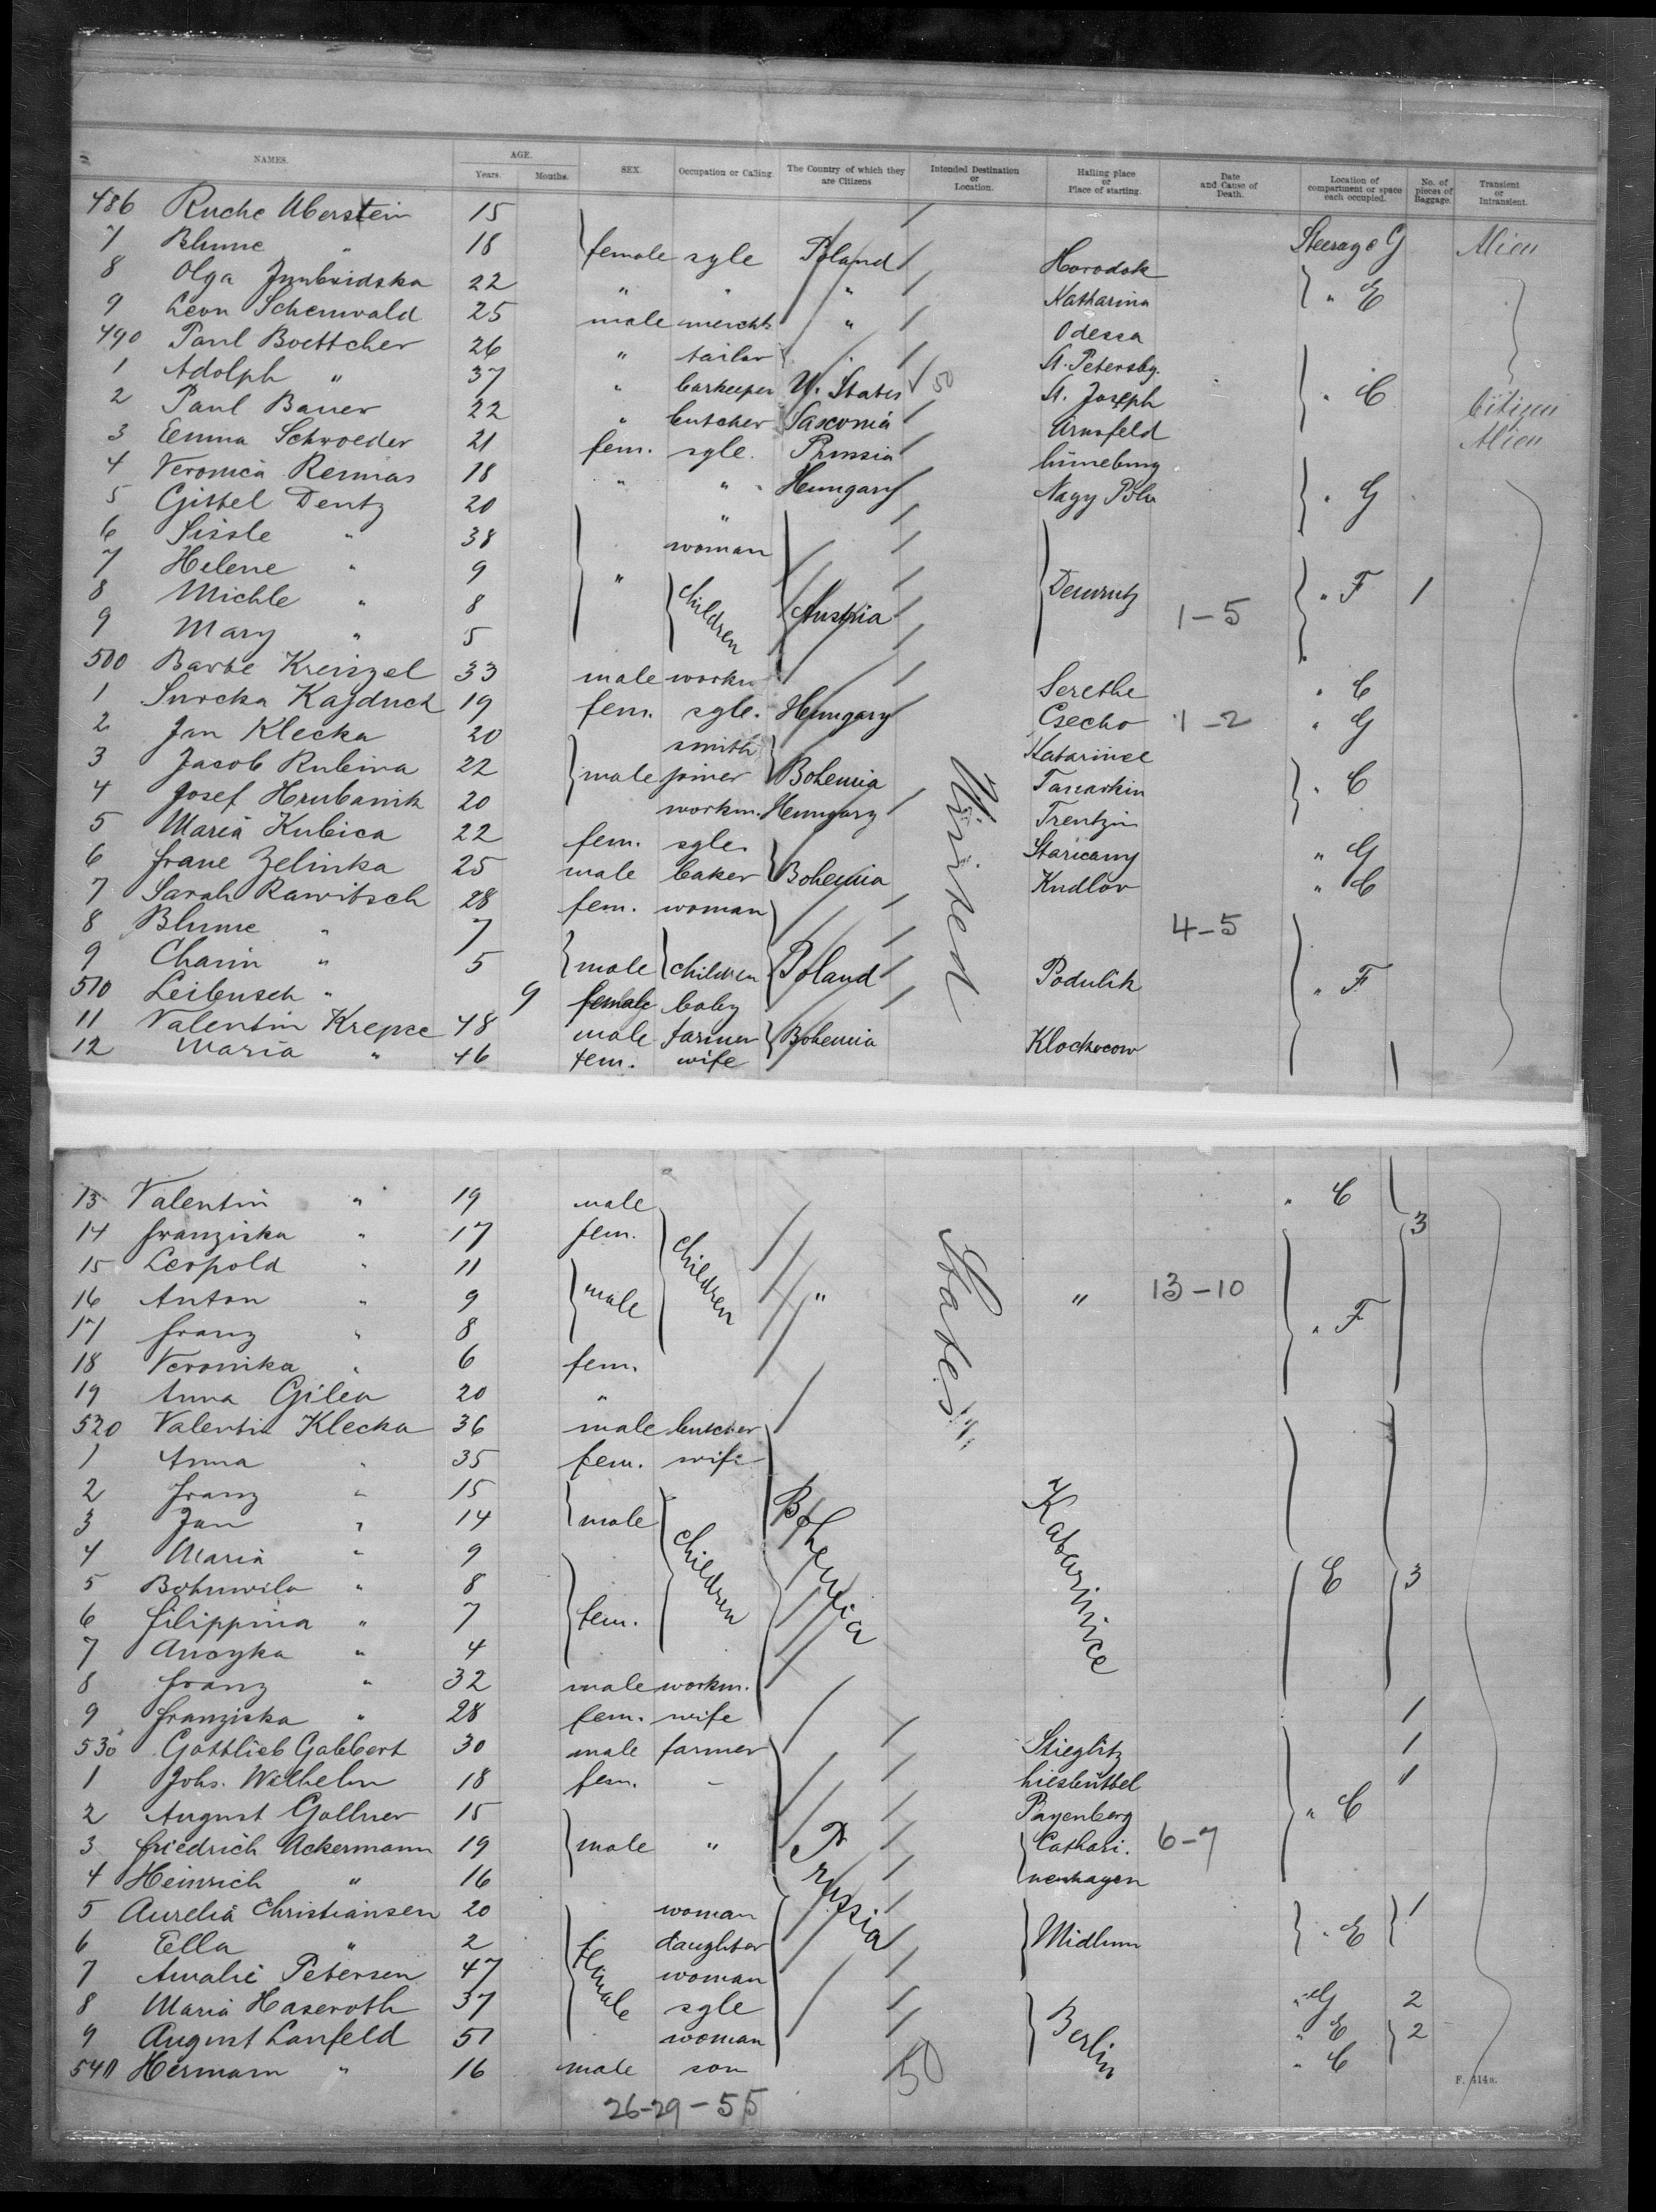 NAMES. AGE. Years. Months. SEX. Occupation or Calling. The Country of which they are Citizens Intended Destination or Location. Hailing place or Place of starting. Date and Cause of Death. Location of compartment or space each occupied. No. of pieces of Baggage. Transient or Intransient.
486 Ruche Uberstein 15
7 Blume " 18 female sgle Poland Horodok Steerage G Alien
8 Olga 22 " " " Katharina " E
9 Leon Schenwald 25 male mercht. " Odessa
490 Paul Boettcher 26 " tailor St. Petersbg.
1 Adolph " 37 " barkeeper U. States 50 St. Joseph " C Citizen
2 Paul Bauer 22 " butcher Saxonia Arnsfeld Alien
3 Emma Schroeder 21 fem. sgle. Prussia Lüneburg
4 Veronica Remias 18 " " Hungary Nagy Pola " G
5 Gittel Dentz 20 "
6 Sissle " 38 woman
7 Helene " 9 " children Austria " F 1
8 Michle " 8 1-5
9 Mary " 5
500 Barbe Kreiszel 33 male workm. Serethe " C
1 Surcka Kajduch 19 fem. sgle. Hungary Csecho 1-2 " G
2 Jan Klecka 20 smith
3 Jacob Rubina 22 male joiner Bohemia " C
4 Josef Hrubanik 20 workm. Hungary Trentzin
5 Maria Kubica 22 fem. sgle. " G
6 Franz Zelinka 25 male baker Bohemia Kudlov " C
7 Sarah Rawitsch 28 fem. woman
8 Blume " 7 4-5
9 Charin " 5 male children Poland Podulik " F
510 Leibusch " 9 female baby
11 Valentin Krepce 48 male farmer Bohemia Klochocow
12 Maria " 46 fem. wife
United
13 Valentin " 19 male " C
14 Franziska " 17 fem. children 3
15 Leopold " 11
16 Anton " 9 male " " 13-10
17 Franz " 8 " F
18 Veronika " 6 fem.
19 Anna Gilea 20 "
States
520 Valentin Klecka 36 male butcher
1 Anna " 35 fem. wife
2 Franz " 15 Bohemia Katarinice
3 Jan " 14 male children
4 Maria " 9
5 " 8 E 3
6 Filippina " 7 fem.
7 " 4
8 Franz " 32 male workm.
9 Franziska " 28 fem. wife 1
530 Gottlieb Gabbert 30 male farmer Stieglitz 1
1 Johs. Wilhelm 18 fem. - "
2 August Gollner 15 Payenberg " C
3 Friedrich Ackermann 19 male " Prussia Cathari. 6-7
4 Heinrich " 16 nenhagen
5 Aurelia Christiansen 20 woman 1
6 Ella " 2 female daughter Midlum " E
7 Amalie Petersen 47 woman
8 Maria Haseroth 37 sgle Berlin " G 2
9 August Lanfeld 51 woman " E 2
540 Hermann " 16 male son 50 " C
F. 414a.
26-29-55